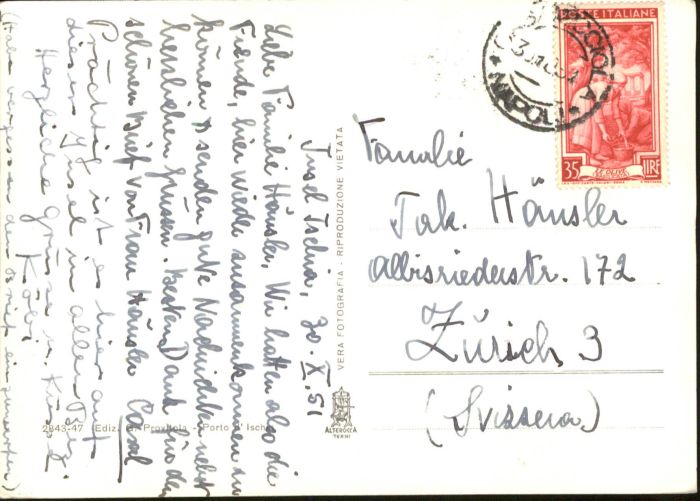 Insel Ischia, 30. X. 51
Liebe Familie Häusler, Wir hatten also die
Freude, hier wieder zusammenkommen zu
können & senden gute Nachrichten nebst
herzlichen Grüssen. Besten Dank für den
schönen Brief von Frau Häusler
Prächtig ist es hier auf
dieser Insel in allen
Herzliche Grüsse u. Küsse
(Habe vergessen den Brief einzuwerfen)
VERA FOTOGRAFIA - RIPRODUZIONE VIETATA
2843-47 Ediz. - Porto d'Ischia
ALTEROCCA
TERNI
POSTE ITALIANE
35 LIRE
NAPOLI
Familie
Jak. Häusler
Albisriederstr. 172
Zürich 3
(Svizzera)